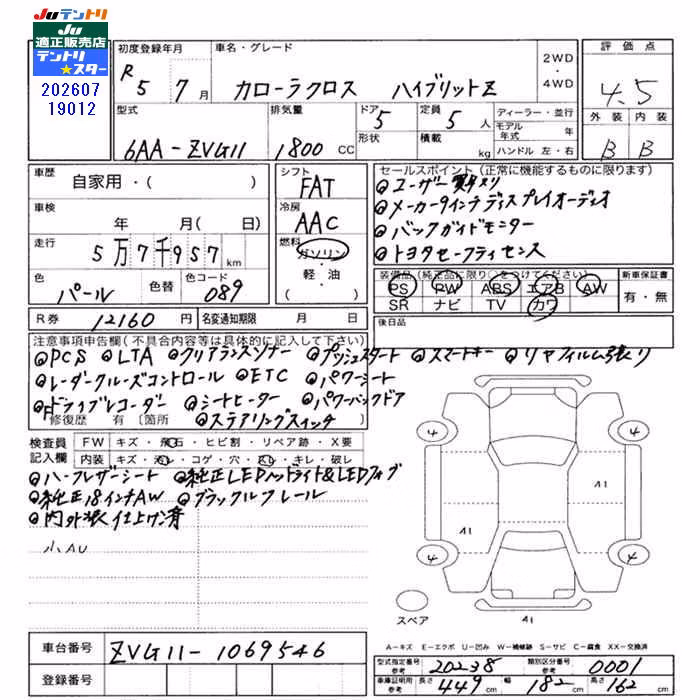 JUテントリ
JU
適正販売店
テントリ
★スター
202607
19012
初度登録年月
R 5 7月
車名・グレード
カローラクロス ハイブリットZ
2WD
・
4WD
評価点
4.5
外装 内装
B B
型式
6AA-ZVG11
排気量
1800 CC
ドア 5
形状
定員 5人
積載 kg
ディーラー・並行
モデル年式 年
ハンドル 左・右
車歴
自家用・( )
車検
年 月( 日)
走行
5万7千957km
色
パール
色替
色コード
089
シフト
FAT
冷房
AAC
燃料
ガソリン
・
軽・油
( )
セールスポイント(正常に機能するものに限ります)
◎ユーザー買取り
◎メーカー9インチディスプレイオーディオ
◎バックガイドモニター
◎トヨタセーフティセンス
装備品(純正品に限り○をつけてください)
PS PW ABS エアB AW
SR ナビ TV カワ
新車保証書
有・無
R券 12160円
名変通知期限 月 日
後日品
注意事項申告欄(不具合内容等は具体的に記入して下さい)
◎PCS ◎LTA ◎クリアランスソナー ◎プッシュスタート ◎スマートキー ◎リヤフィルム張り
◎レーダークルーズコントロール ◎ETC ◎パワーシート
◎Fドライブレコーダー ◎シートヒーター ◎パワーバックドア
修復歴 有 〔箇所 ◎ステアリングスイッチ
検査員
記入欄
FW キズ・飛石・ヒビ割・リペア跡・X要
内装 キズ・汚レ・コゲ・穴・スレ・キレ・破レ
◎ハーフレザーシート ◎純正LEDヘッドライト&LEDフォグ
◎純正18インチAW ◎ブラックルーフレール
◎内外装仕上げ済
小AU
4 4
A1
A1
4 4
スペア
A1
A=キズ E=エクボ U=凹み W=補修跡 S=サビ C=腐食 XX=交換済
車台番号 ZVG11-1069546
登録番号
型式指定番号 参考 20238
類別区分番号 参考 0001
車庫証明用 参考 長さ 449cm 幅 182cm 高さ 162cm